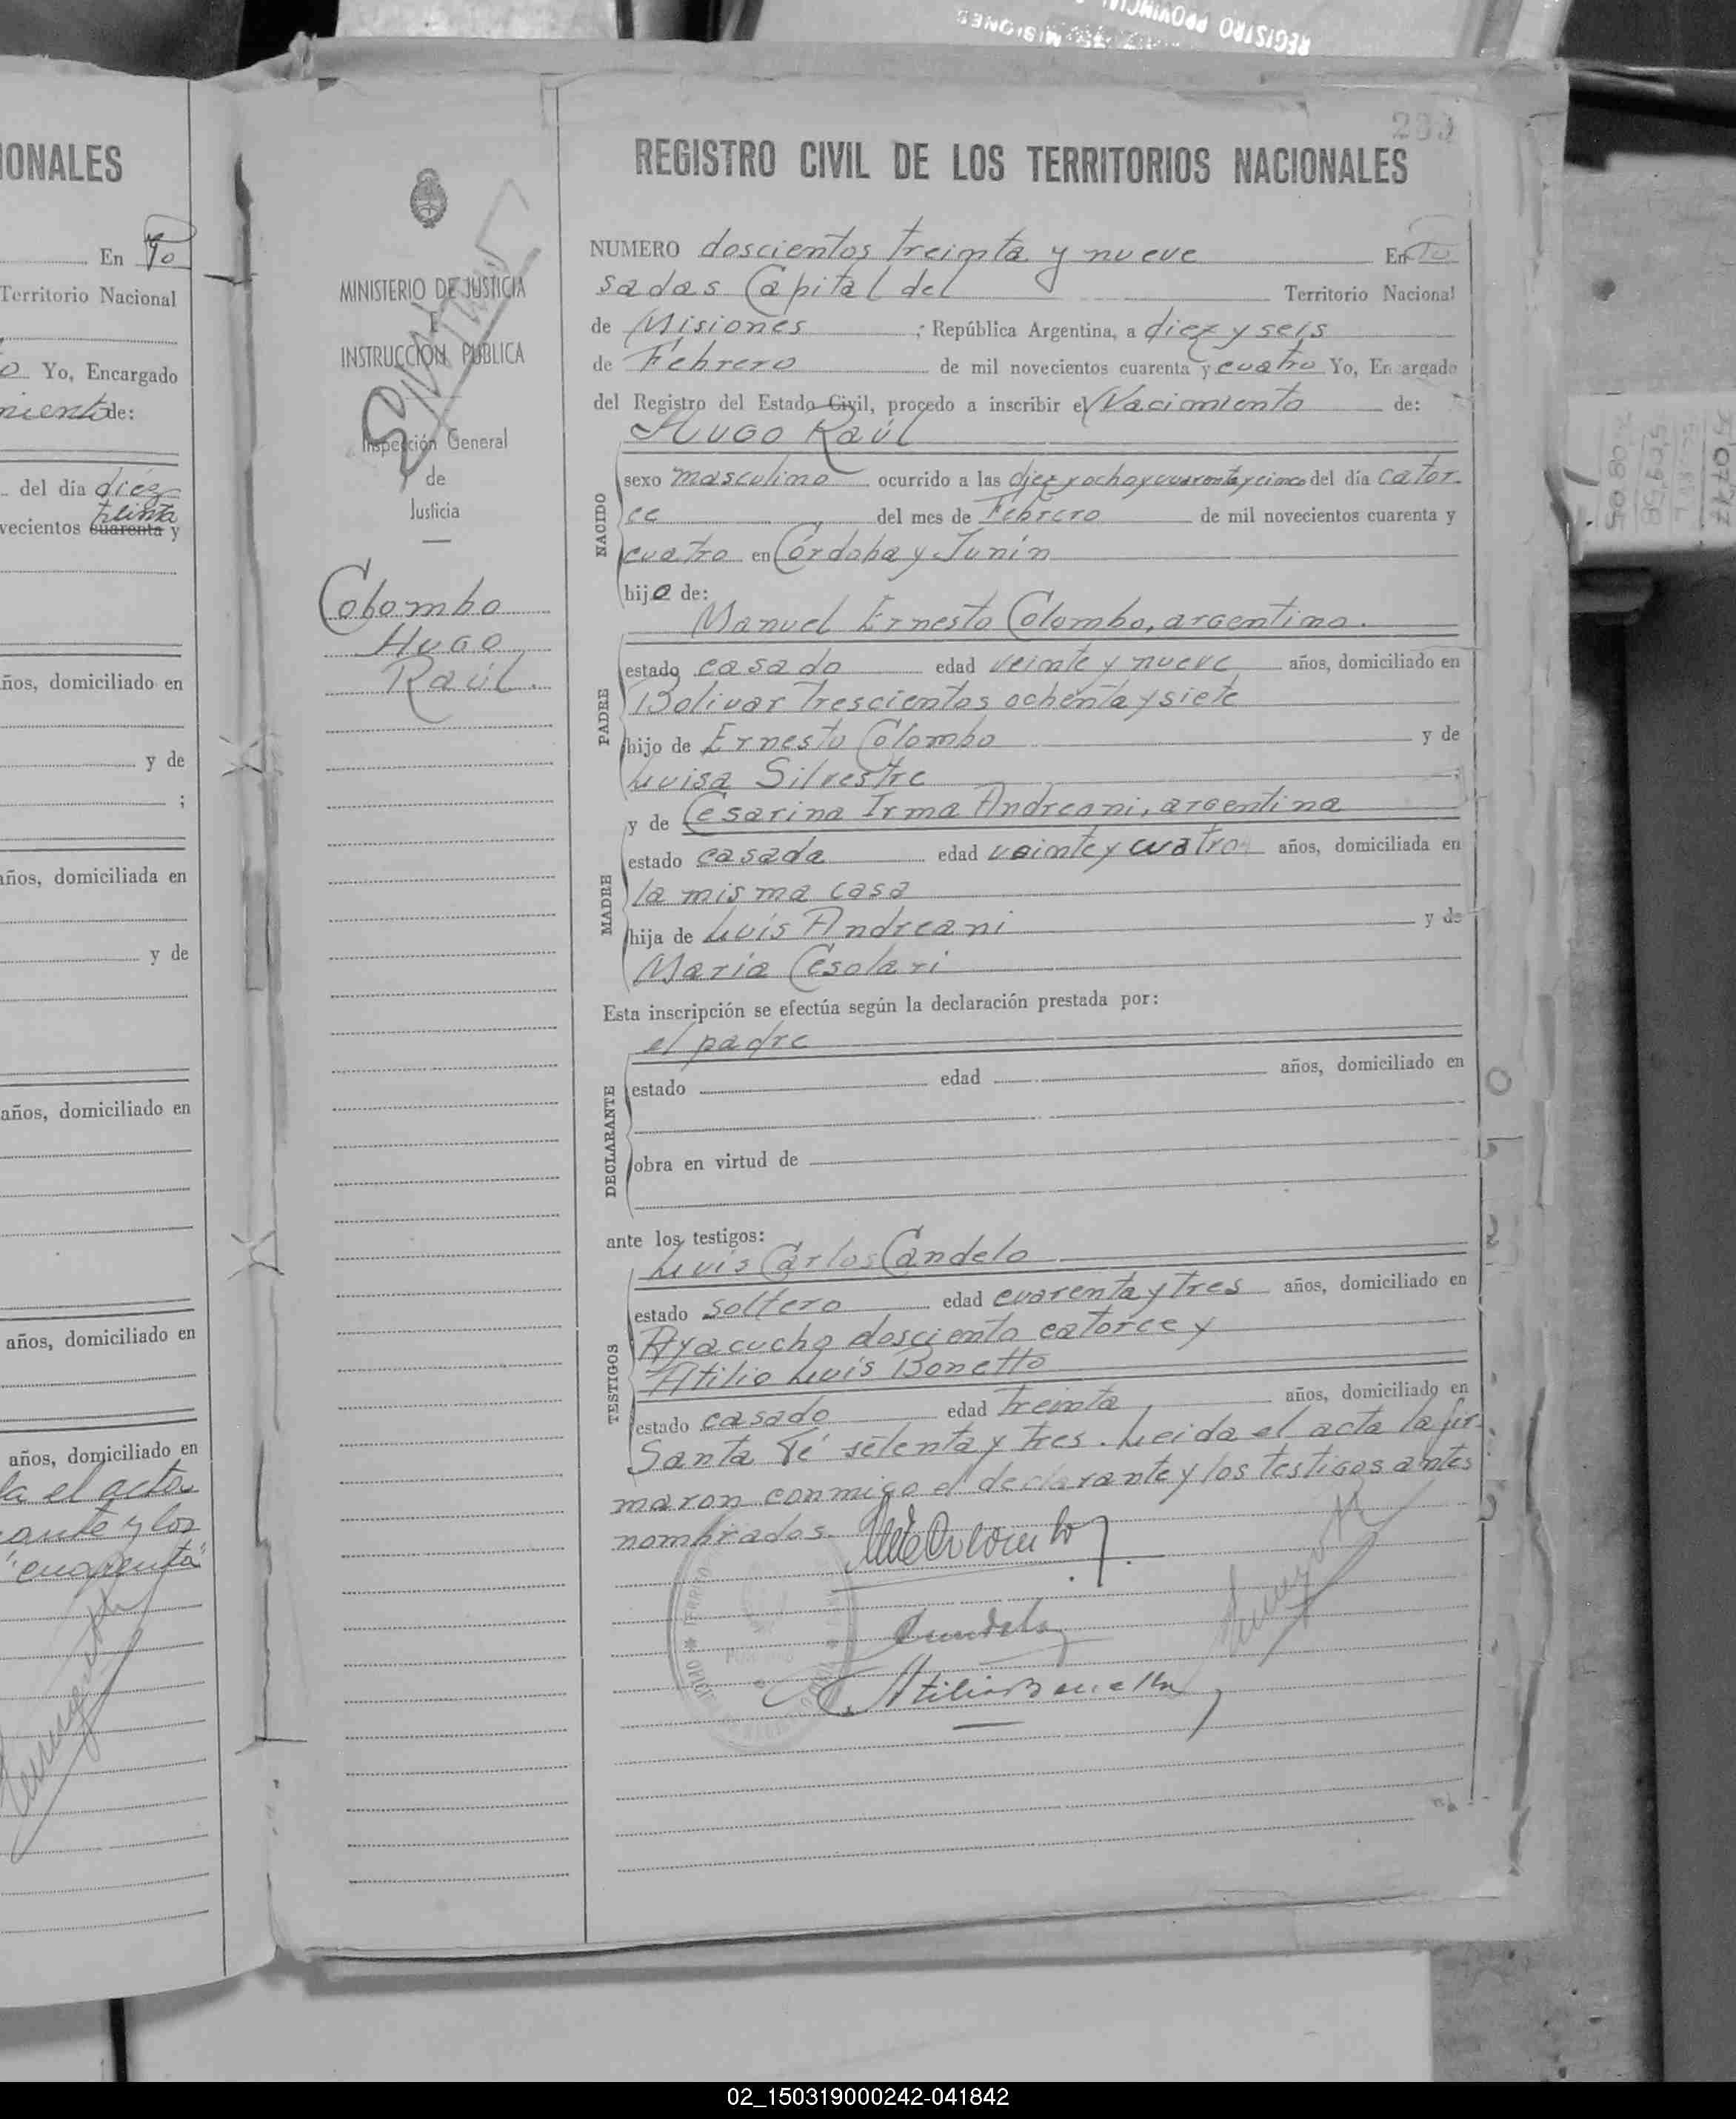 REGISTRO PROVINCIAL
MISIONES
IONALES
En Po
Territorio Nacional
Yo, Encargado
miento de:
del día diez
treinta
vecientos cuarenta y
ños, domiciliado en
y de
;
años, domiciliada en
y de
años, domiciliado en
años, domiciliado en
años, domiciliado en
da el acta
ante y los
"cuarenta"
MINISTERIO DE JUSTICIA
E
INSTRUCCIÓN PÚBLICA
Inspección General
de
Justicia
Colombo
Hugo
Raúl.
REGISTRO CIVIL DE LOS TERRITORIOS NACIONALES
NUMERO doscientos treinta y nueve En Po
sadas Capital del Territorio Nacional
de Misiones ; República Argentina, a diez y seis
de Febrero de mil novecientos cuarenta y cuatro Yo, Encargado
del Registro del Estado Civil, procedo a inscribir el Nacimiento de:
Hugo Raúl
NACIDO
sexo masculino ocurrido a las diez y ocho y cuarenta y cinco del día cator-
ce del mes de Febrero de mil novecientos cuarenta y
cuatro en Córdoba y Junín
hijo de:
Manuel Ernesto Colombo, argentino.
PADRE
estado casado edad veinte y nueve años, domiciliado en
Bolivar trescientos ochenta y siete
hijo de Ernesto Colombo y de
Luisa Silvestre ;
y de Cesarina Irma Andreani, argentina
MADRE
estado casada edad veinte y cuatro años, domiciliada en
la misma casa
hija de Luis Andreani y de
María Cesolari
Esta inscripción se efectúa según la declaración prestada por:
el padre
DECLARANTE
estado edad años, domiciliado en
obra en virtud de
ante los testigos:
Luis Carlos Candelo
TESTIGOS
estado soltero edad cuarenta y tres años, domiciliado en
Ayacucho dosciento catorce y
Atilio Luis Bonetto
estado casado edad treinta años, domiciliado en
Santa Fé setenta y tres. Leida el acta la fir-
maron conmigo el declarante y los testigos antes
nombrados.
MEColombo
Candelo
Atilio Bonetto
02_150319000242-041842